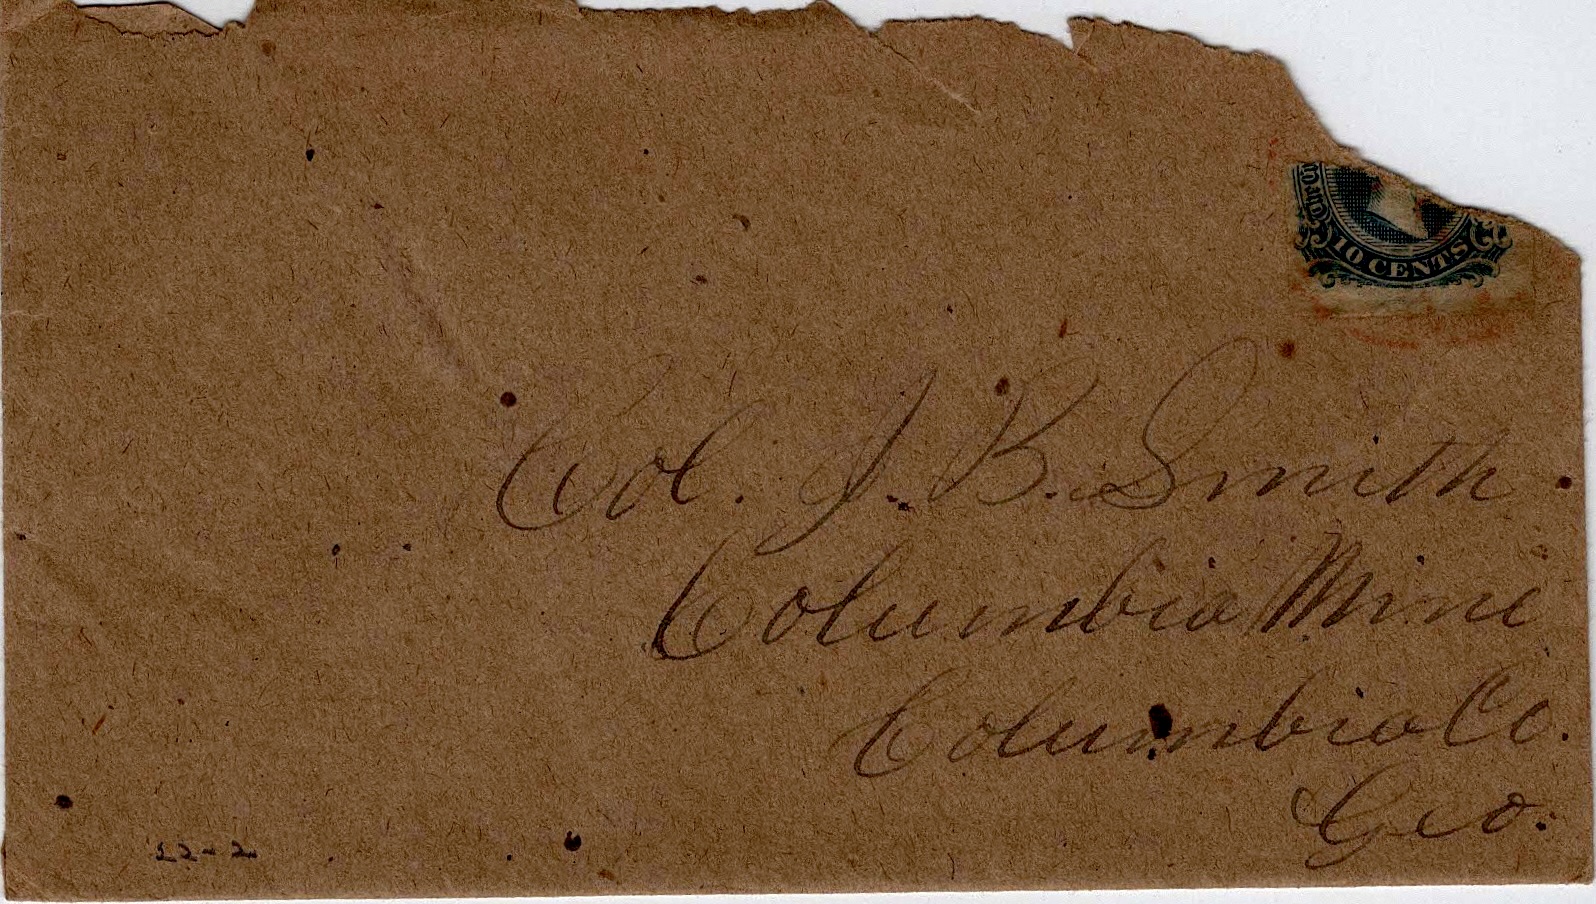 10 CENTS
Col. J. B. Smith
Columbia Mine
Columbia Co.
Geo.